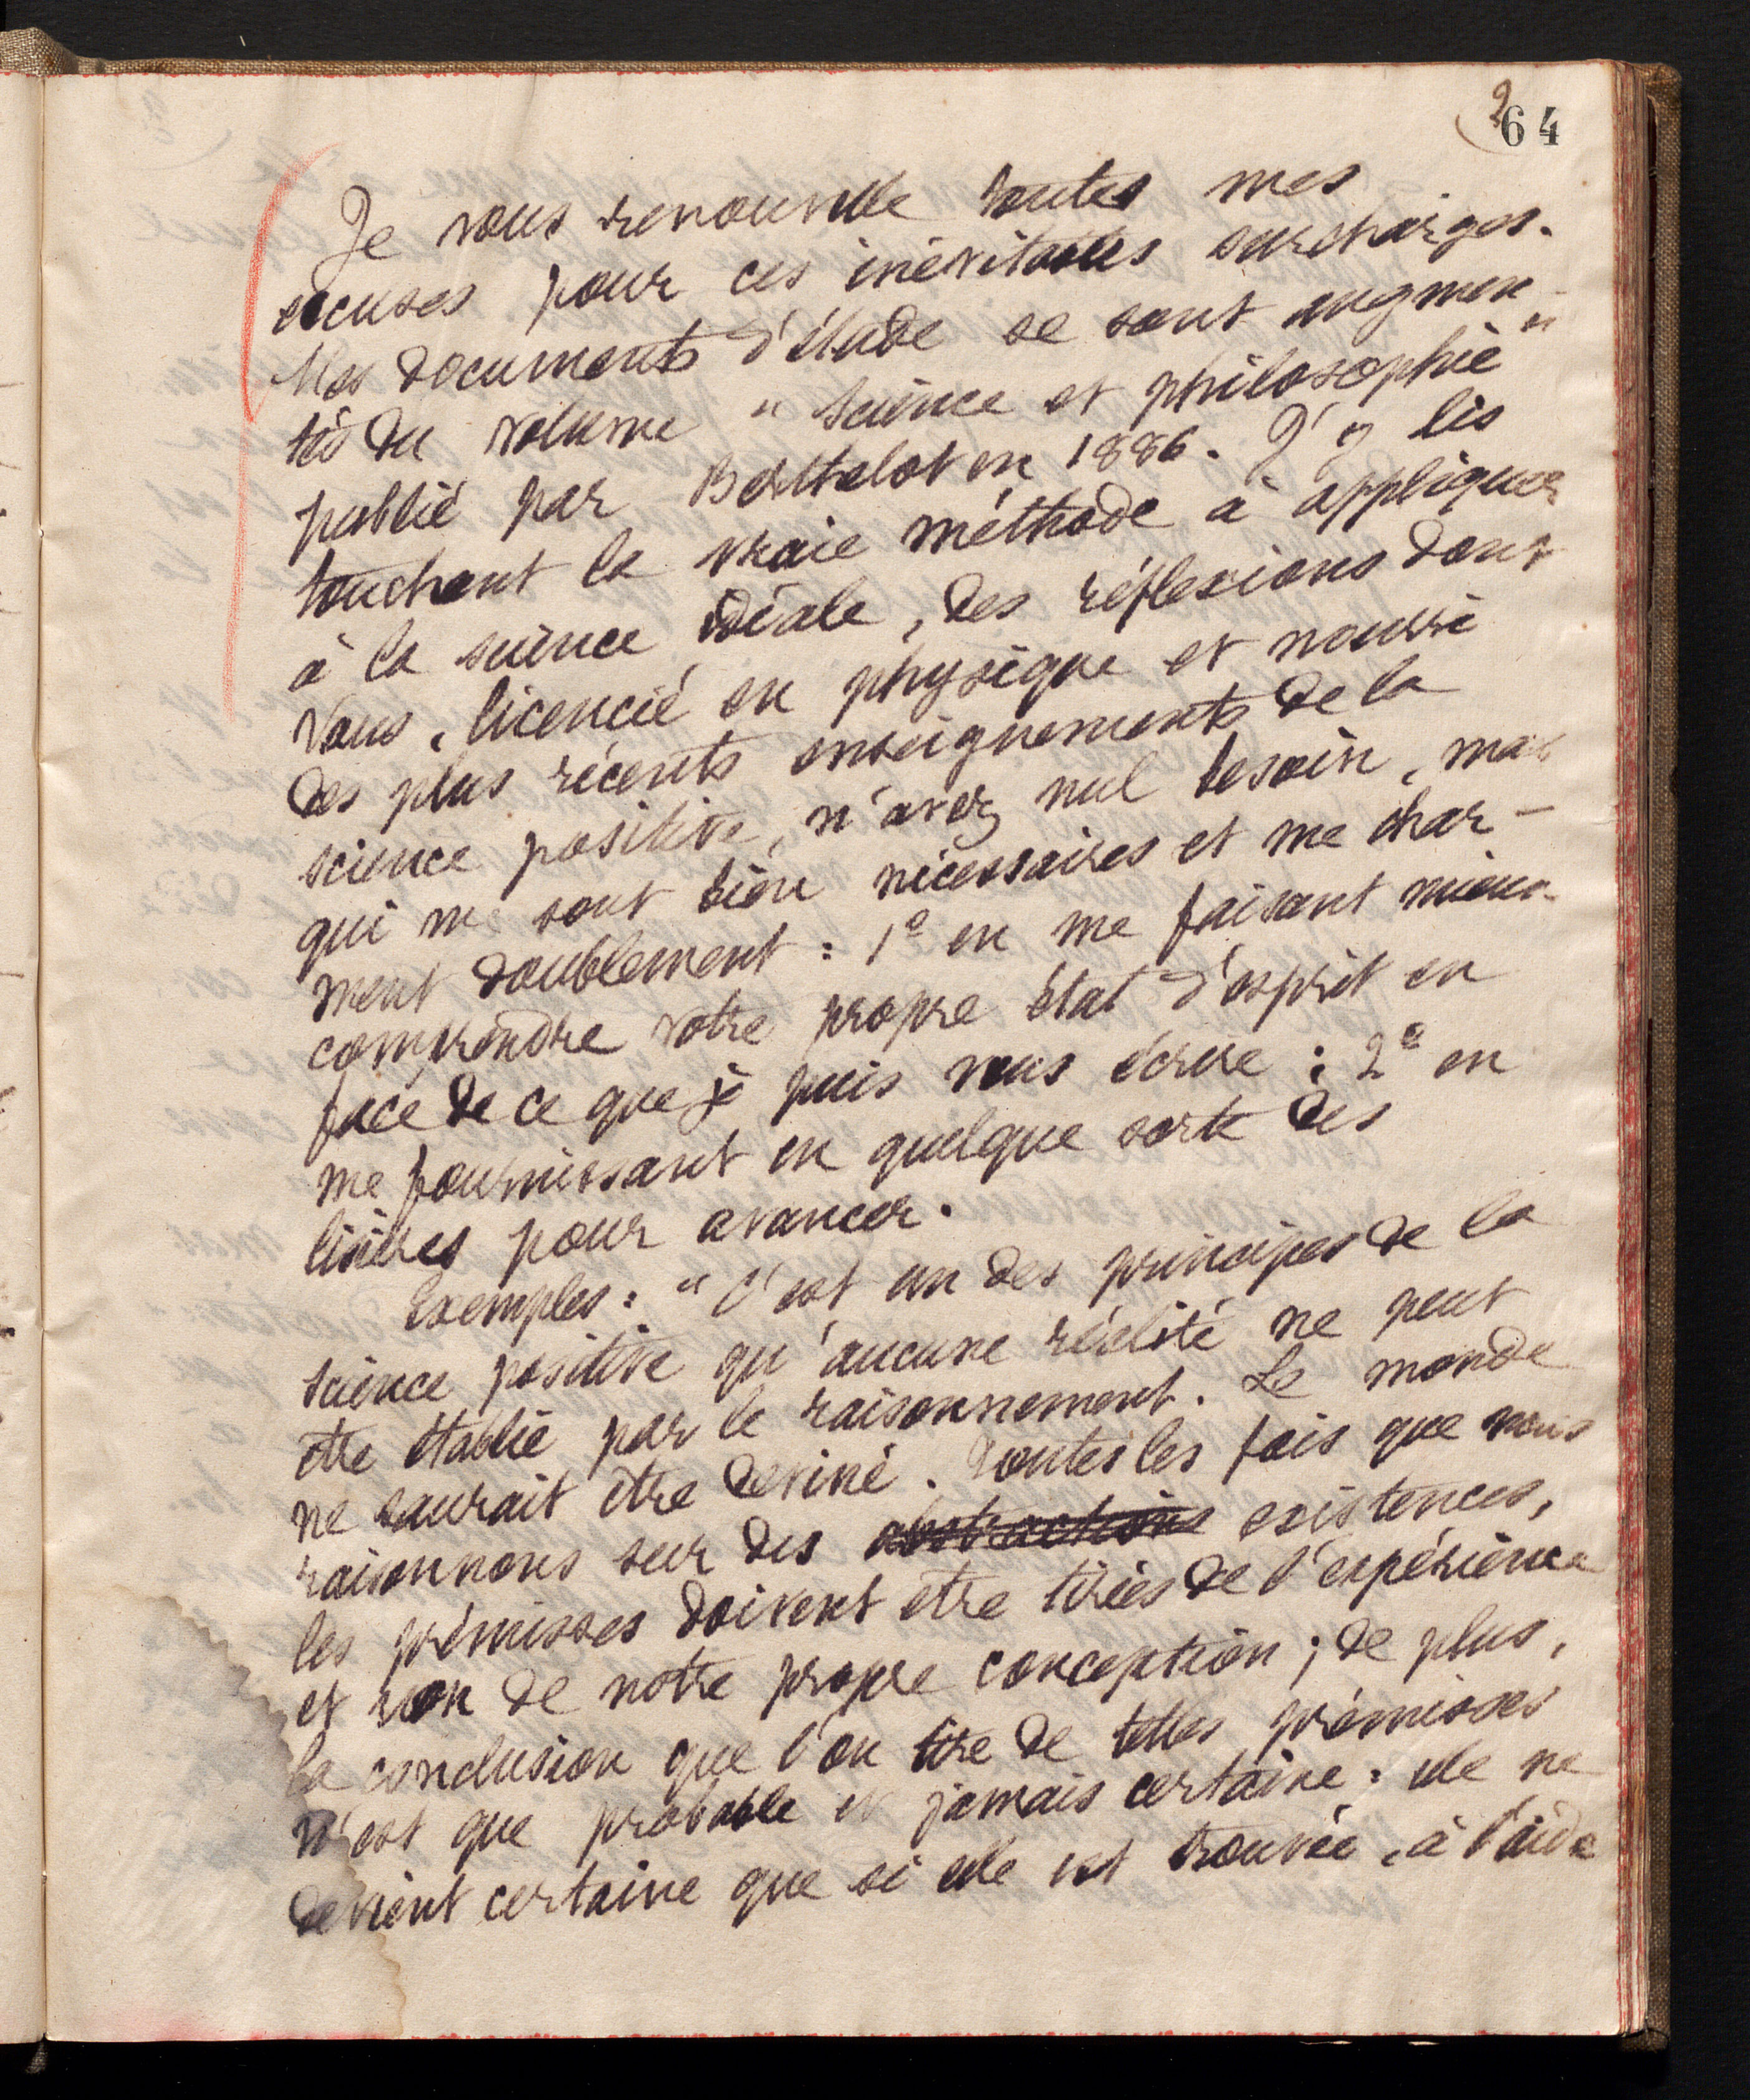 (2
64
Je vous renouvelle toutes mes
excuses pour ces inévitables surcharges.
Mes documents d'étude se sont augmen-
tés du volume "Science et philosophie"
publié par Berthelot en 1886. J'y lis
touchant la vraie méthode à appliquer
à la science idéale, des réflexions dont
vous, licencié en physique et nourri
des plus récents enseignements de la
science positive, n'avez nul besoin, mais
qui me sont bien nécessaires et me char-
ment doublement : 1º en me faisant mieux
comprendre votre propre état d'esprit en
face de ce que je puis vous écrire ; 2º en
me fournissant en quelque sorte des
lisières pour avancer.
Exemples : "C'est un des principes de la
science positive qu'aucune réalité ne peut
etre établie par le raisonnement. Le monde
ne saurait être deviné. Toutes les fois que nous
raisonnons sur des abstractions existences,
les prémisses doivent etre tirées de l'expérience
et non de notre propre conception ; de plus,
la conclusion que l'on tire de telles prémisses
n'est que probable et jamais certaine : elle ne
devient certaine que si elle est trouvée, à l'aide